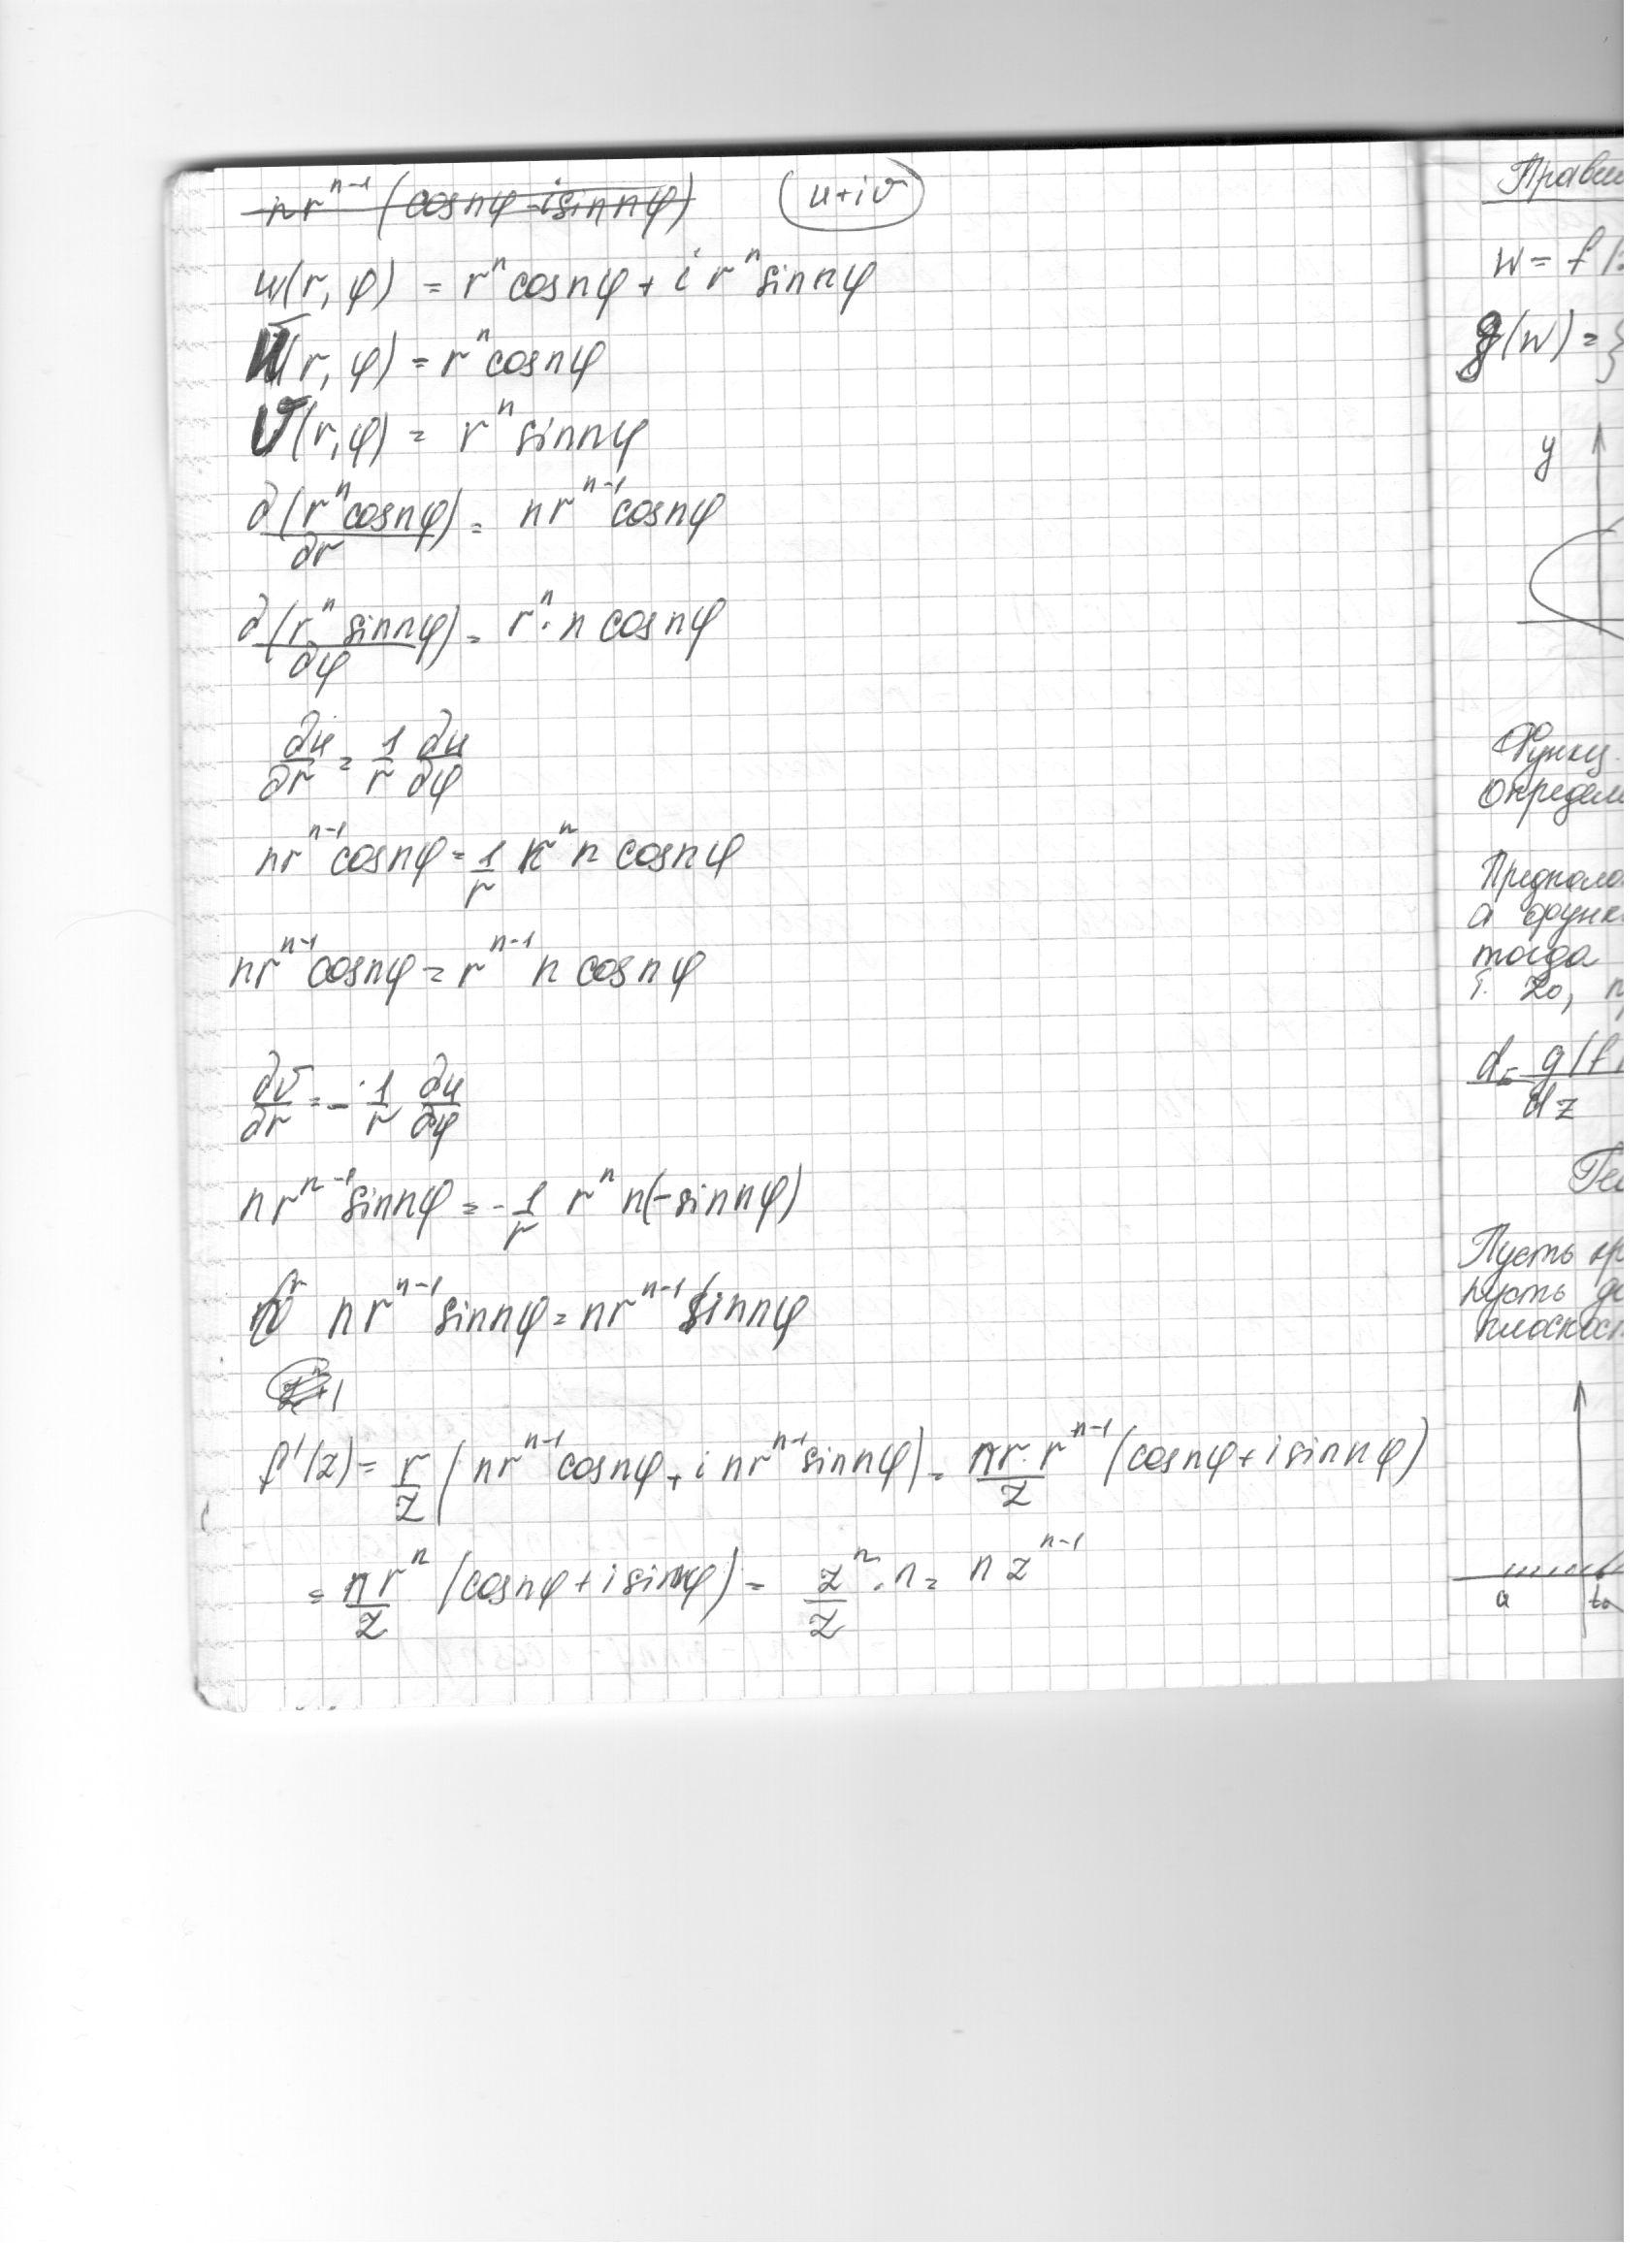 nr^{n-1} (cos nφ - i sin nφ) (u+iv)
w(r, φ) = r^n cos nφ + i r^n sin nφ
u(r, φ) = r^n cos nφ
v(r, φ) = r^n sin nφ
∂(r^n cos nφ)/∂r = nr^{n-1} cos nφ
∂(r^n sin nφ)/∂φ = r^n · n cos nφ
∂u/∂r = 1/r ∂u/∂φ
nr^{n-1} cos nφ = 1/r r^n n cos nφ
nr^{n-1} cos nφ = r^{n-1} n cos nφ
∂v/∂r = - 1/r ∂u/∂φ
nr^{n-1} sin nφ = - 1/r r^n n(-sin nφ)
nr^{n-1} sin nφ = nr^{n-1} sin nφ
f'(z) = r/z (nr^{n-1} cos nφ + i nr^{n-1} sin nφ) = nr · r^{n-1}/z (cos nφ + i sin nφ)
= nr^n/z (cos nφ + i sin nφ) = z^n/z · n = n z^{n-1}
w = f(
g(w) = {
y
тогда
т. z₀,
g(f
dz
Пусть
пусть
a